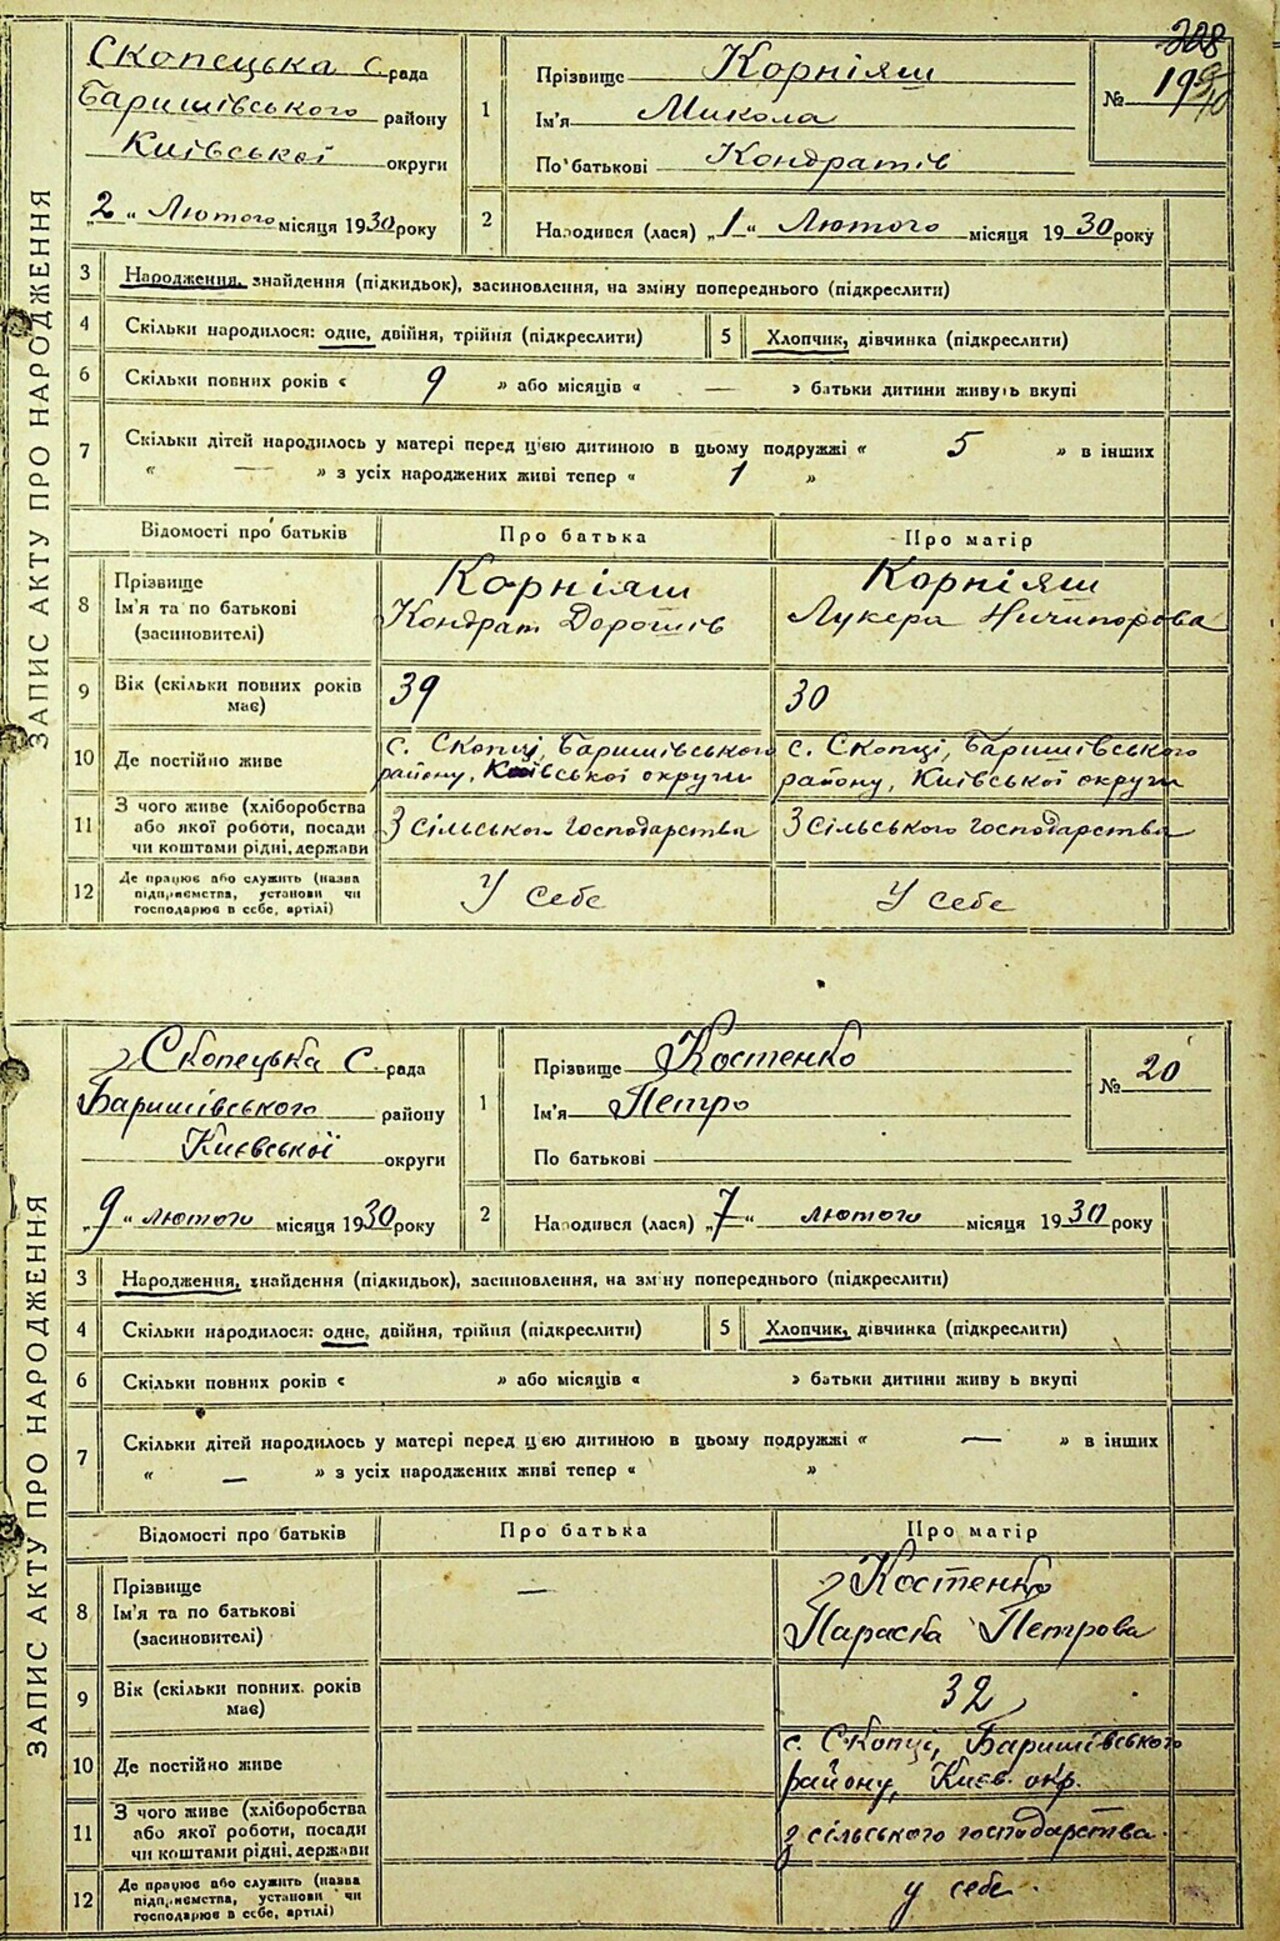 328
ЗАПИС АКТУ ПРО НАРОДЖЕННЯ
Скопецька с. рада
Баришівського району
Київської округи
„2“ Лютого місяця 1930 року
1
Прізвище Корніяш
Ім'я Микола
По батькові Кондратів
№ 19
2
Народився (лася) „1“ Лютого місяця 1930 року
3 Народження, знайдення (підкидьок), засиновлення, на зміну попереднього (підкреслити)
4 Скільки народилося: одне, двійня, трійня (підкреслити) 5 Хлопчик, дівчинка (підкреслити)
6 Скільки повних років « 9 » або місяців « — » батьки дитини живуть вкупі
7 Скільки дітей народилось у матері перед цією дитиною в цьому подружжі « 5 » в інших
« — » з усіх народжених живі тепер « 1 »
Відомості про батьків Про батька Про матір
8 Прізвище Корніяш Корніяш
Ім'я та по батькові Кондрат Дорошів Лукера Ничипорова
(засиновителі)
9 Вік (скільки повних років 39 30
має)
10 Де постійно живе с. Скопці, Баришівського с. Скопці, Баришівського
району, Київської округи району, Київської округи
11 З чого живе (хліборобства
або якої роботи, посади З сільського господарства З сільського господарства
чи коштами рідні, держави
12 Де працює або служить (назва
підприємства, установи чи У себе У себе
господарює в себе, артілі)
ЗАПИС АКТУ ПРО НАРОДЖЕННЯ
Скопецька с. рада
Баришівського району
Києвської округи
„9“ лютого місяця 1930 року
1
Прізвище Костенко
Ім'я Петро
По батькові
№ 20
2
Народився (лася) „7“ лютого місяця 1930 року
3 Народження, знайдення (підкидьок), засиновлення, на зміну попереднього (підкреслити)
4 Скільки народилося: одне, двійня, трійня (підкреслити) 5 Хлопчик, дівчинка (підкреслити)
6 Скільки повних років « » або місяців « » батьки дитини живу ь вкупі
7 Скільки дітей народилось у матері перед цією дитиною в цьому подружжі « — » в інших
« — » з усіх народжених живі тепер « »
Відомості про батьків Про батька Про матір
8 Прізвище — Костенко
Ім'я та по батькові Параска Петрова
(засиновителі)
9 Вік (скільки повних років 32
має)
10 Де постійно живе с. Скопці, Баришівського
району, Києв. окр.
11 З чого живе (хліборобства
або якої роботи, посади з сільського господарства
чи коштами рідні, держави
12 Де працює або служить (назва
підприємства, установи чи у себе.
господарює в себе, артілі)